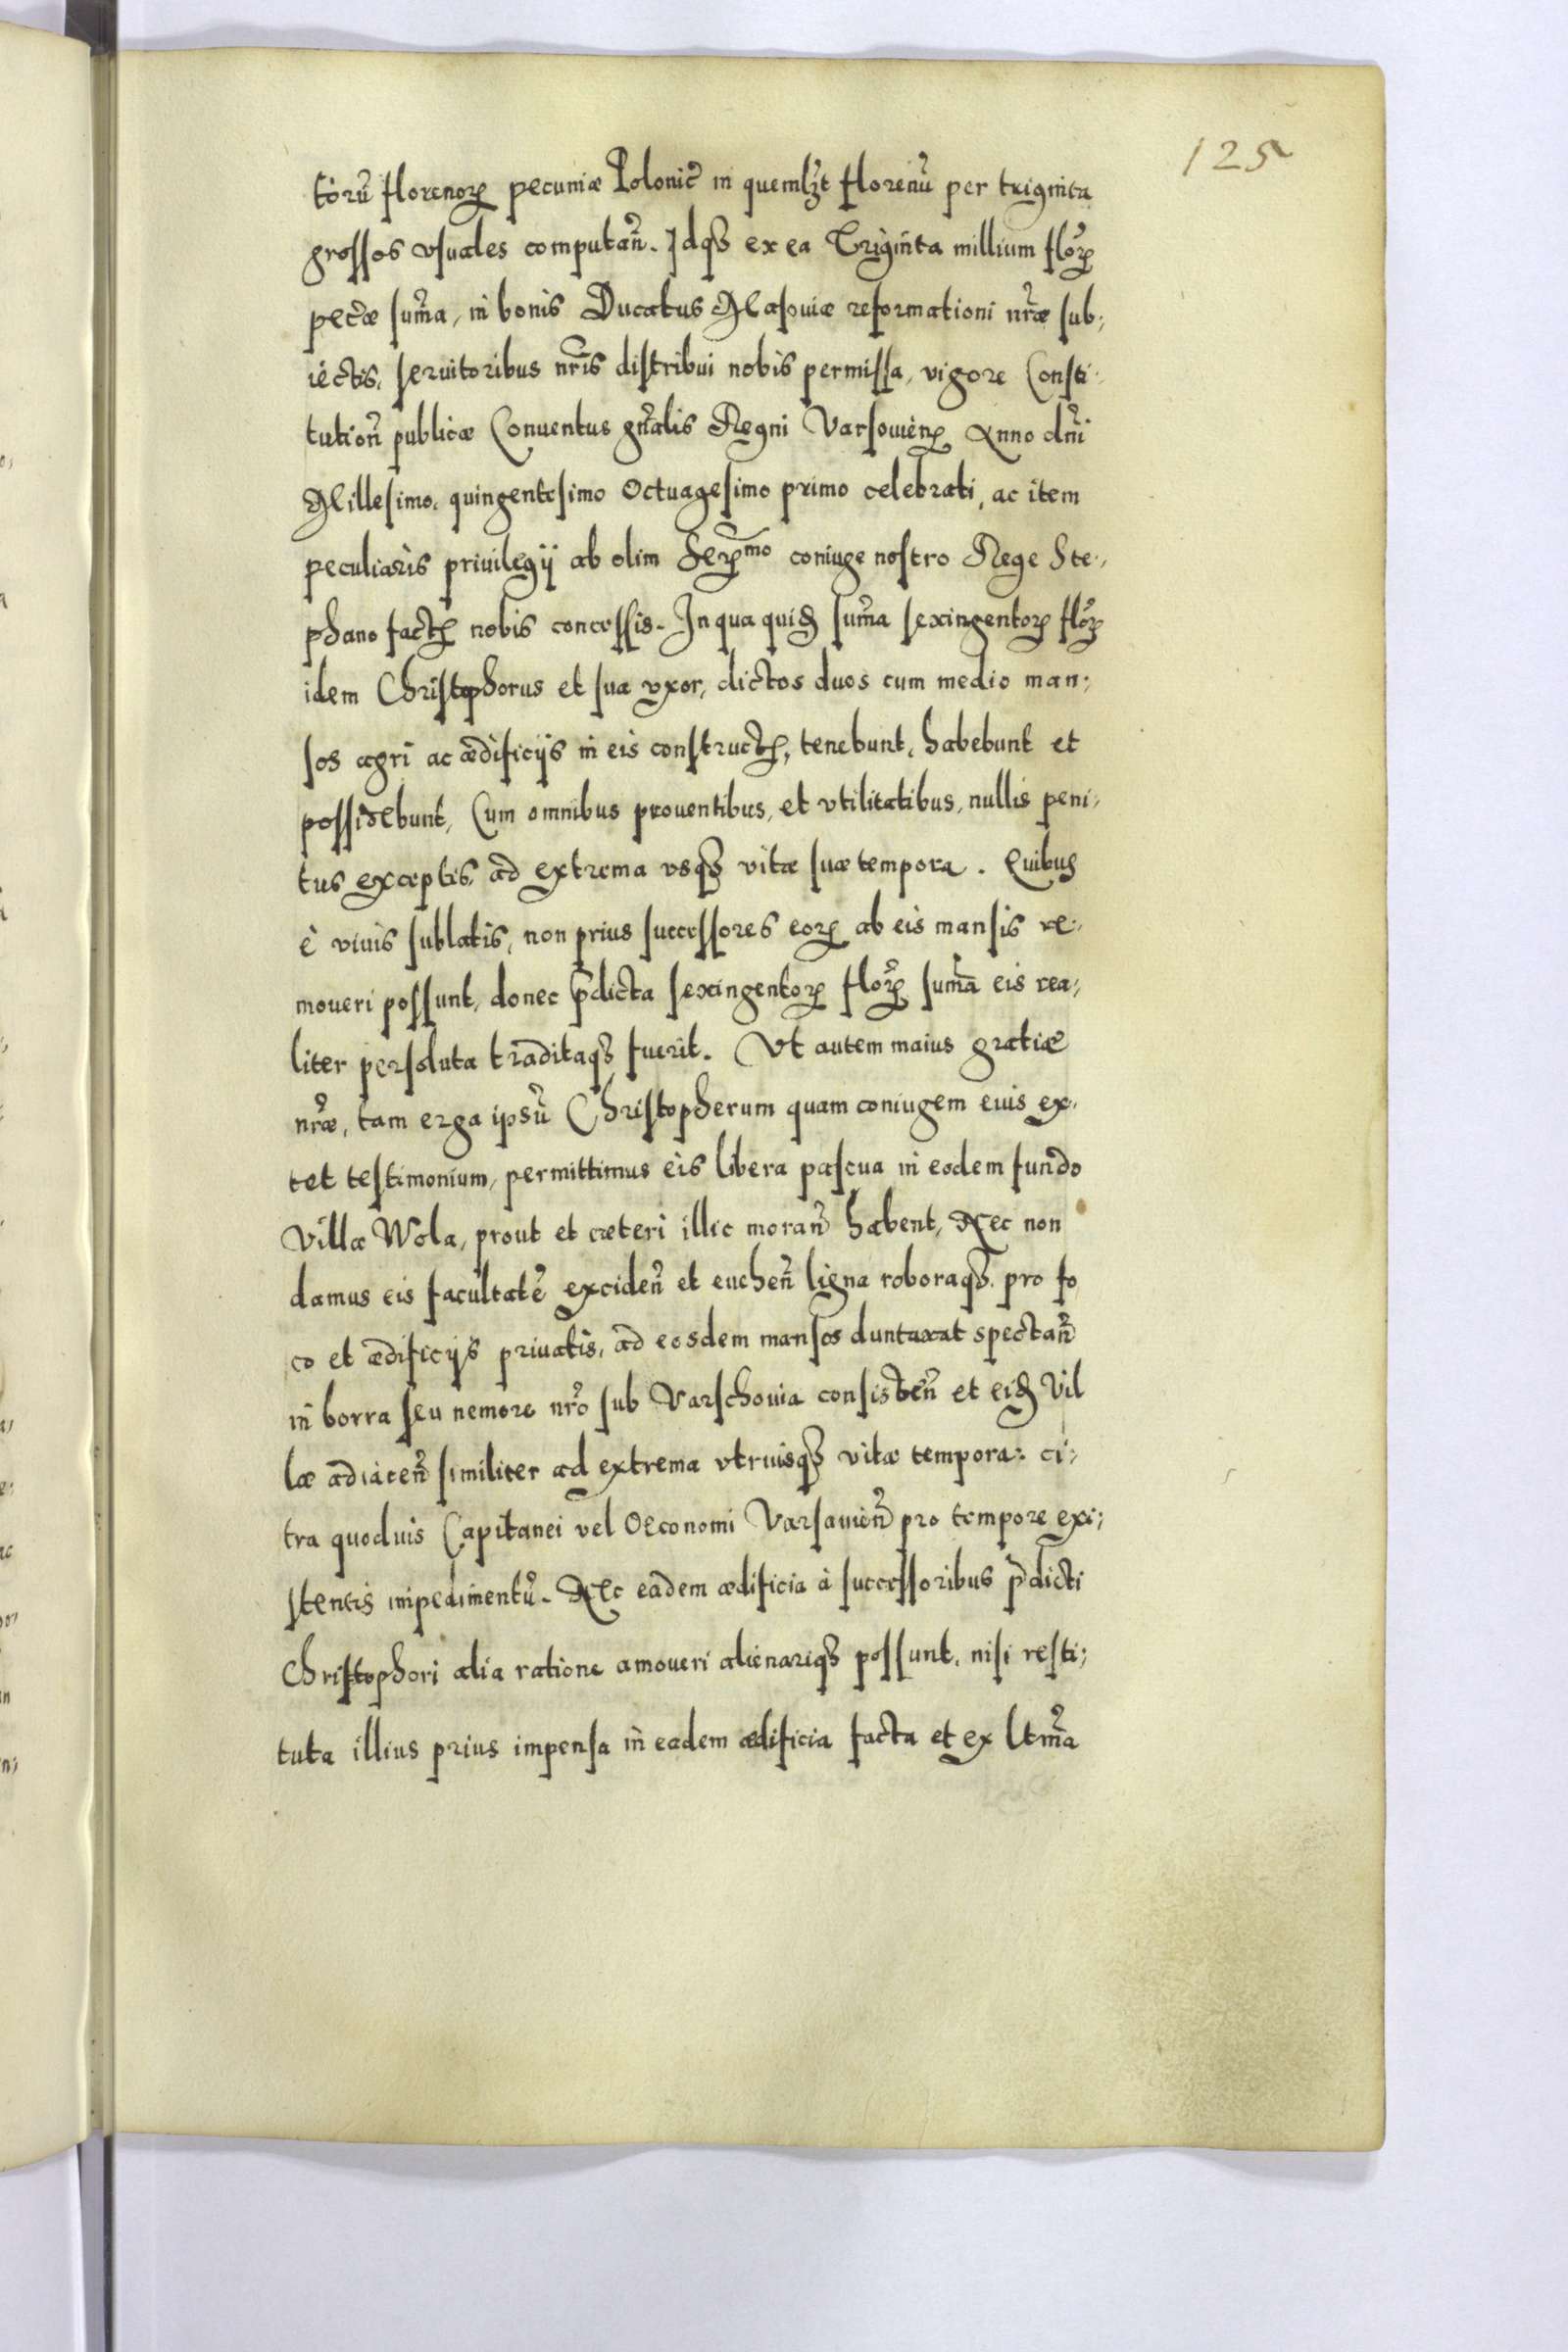 125
torũ florenoꝝ pecuniæ Polonic̃ in quemlꝫt florenũ per triginta
grossos vsuales computañ. Idqꝫ ex ea Triginta millium flõꝝ
pec̃æ sum̃a, in bonis Ducatus Masouiæ reformationi nr̃æ sub,
iectis, seruitoribus nr̃is distribui nobis permissa, vigore Consti,
tution̄ publicæ Conuentus gñalis Regni Varsouieñ Anno dñi
Millesimo, quingentesimo Octuagesimo primo celebrati, ac item
peculiaris priuilegij ab olim Serꝫmo coniuge nostro Rege Ste,
phano factꝫ nobis concessis. In qua quiđ sum̃a sexingentoꝝ flõꝝ
idem Christophorus et sua vxor, dictos duos cum medio man,
sos agri ac ædificijs in eis constructꝫ, tenebunt, habebunt et
possidebunt, Cum omnibus prouentibus, et vtilitatibus, nullis peni,
tus exceptis, ad extrema vsqꝫ vitæ suæ tempora. Quibus
è viuis sublatis, non prius successores eoꝝ ab eis mansis re,
moueri possunt, donec p̃dicta sexingentoꝝ flõꝝ sum̃a eis rea,
liter persoluta traditaqꝫ fuerit. Vt autem maius gratiæ
nr̃æ, tam erga ipsũ Christopherum quam coniugem eius ex,
tet testimonium, permittimus eis libera pascua in eodem fundo
Villæ Wola, prout et cæteri illic morañ habent, Nec non
damus eis facultatẽ excideñ et eueheñ ligna roboraqꝫ pro fo
co et ædificijs priuatis, ad eosdem mansos duntaxat spectañ
in borra seu nemore nr̃o sub Varschouia consisteñ et eiđ Vil
læ adiaceñ similiter ad extrema vtriusqꝫ vitæ tempora: ci,
tra quoduis Capitanei vel Oeconomi Varsauieñ pro tempore exi,
stentis impedimentũ. Nec eadem ædificia à successoribus p̃dicti
Christophori alia ratione amoueri alienariqꝫ possunt, nisi resti,
tuta illius prius impensa in eadem ædificia facta et ex ltm̃a